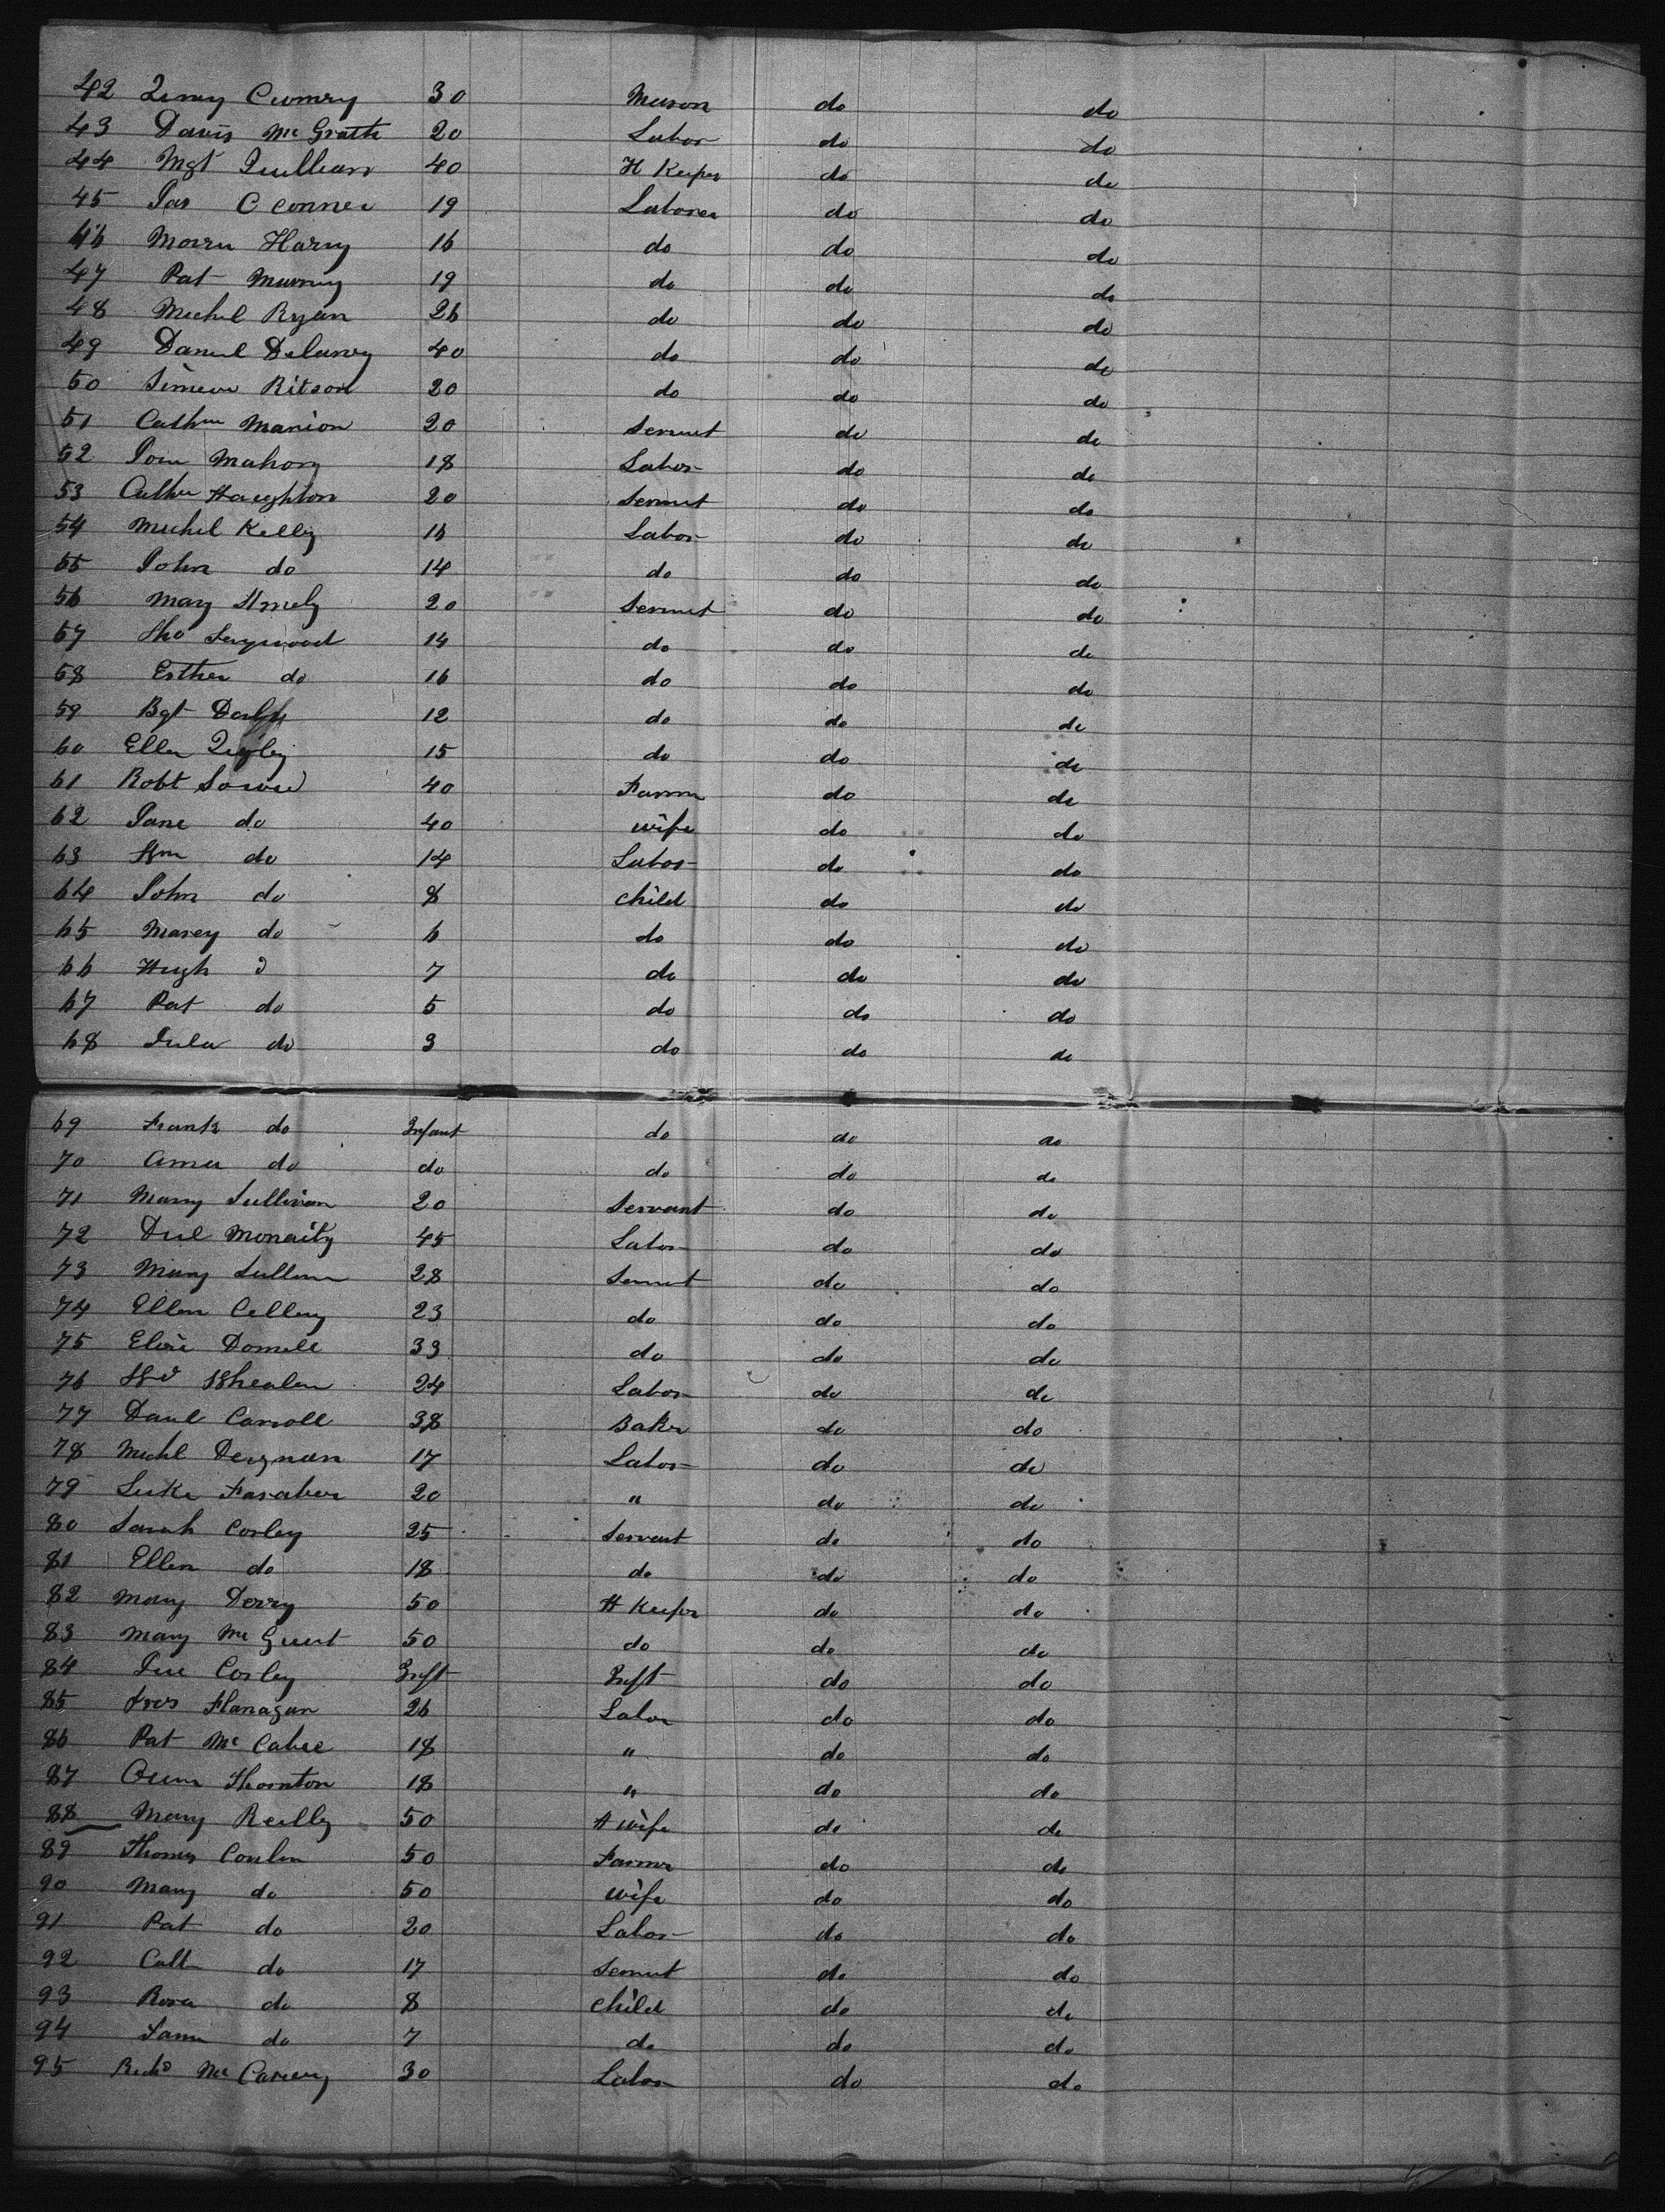 42 Cumry 30 Mason do do
43 Davis McGrath 20 Labor do do
44 Mgt 40 H Keeper do do
45 Jas O Conner 19 Laborer do do
46 Harry 16 do do do
47 Pat Murray 19 do do do
48 Michel Ryan 26 do do do
49 Daniel Delaney 40 do do do
50 Ritson 20 do do do
51 Marion 20 Servnt do do
52 Mahony 18 Labor do do
53 Haughton 20 Servnt do do
54 Michel Kelly 16 Labor do do
55 John do 14 do do do
56 Mary 20 Servnt do do
57 Tho 14 do do do
58 Esther do 16 do do do
59 Bgt 12 do do do
60 Ellen 15 do do do
61 Robt 40 Farmr do do
62 Jane do 40 wife do do
63 Wm do 14 Labor do do
64 John do 8 child do do
65 Marey do 6 do do do
66 Hugh d 7 do do do
67 Pat do 5 do do do
68 Julia do 3 do do do
69 Frank do Infant do do do
70 do do do do do
71 Mary Sullivan 20 Servant do do
72 45 Labor do do
73 Mary Sullivan 28 Servnt do do
74 Ellen 23 do do do
75 33 do do do
76 Whealen 24 Labor do do
77 Danl Carroll 38 Baker do do
78 Michl Deignan 17 Labor do do
79 Luke 20 " do do
80 Sarah Corley 25 Servant do do
81 Ellen do 18 do do do
82 Mary Derry 50 H Keeper do do
83 Mary Mc 50 do do do
84 Corley Inft Inft do do
85 Flanagan 26 Labor do do
86 Pat McCabee 18 " do do
87 Thornton 18 " do do
88 Mary Reilly 50 H wife do do
89 Thomas Conlon 50 Farmer do do
90 Mary do 50 wife do do
91 Pat do 20 Labor do do
92 Cath do 17 Servnt do do
93 Rosa do 8 child do do
94 do 7 do do do
95 Richd Mc 30 Labor do do